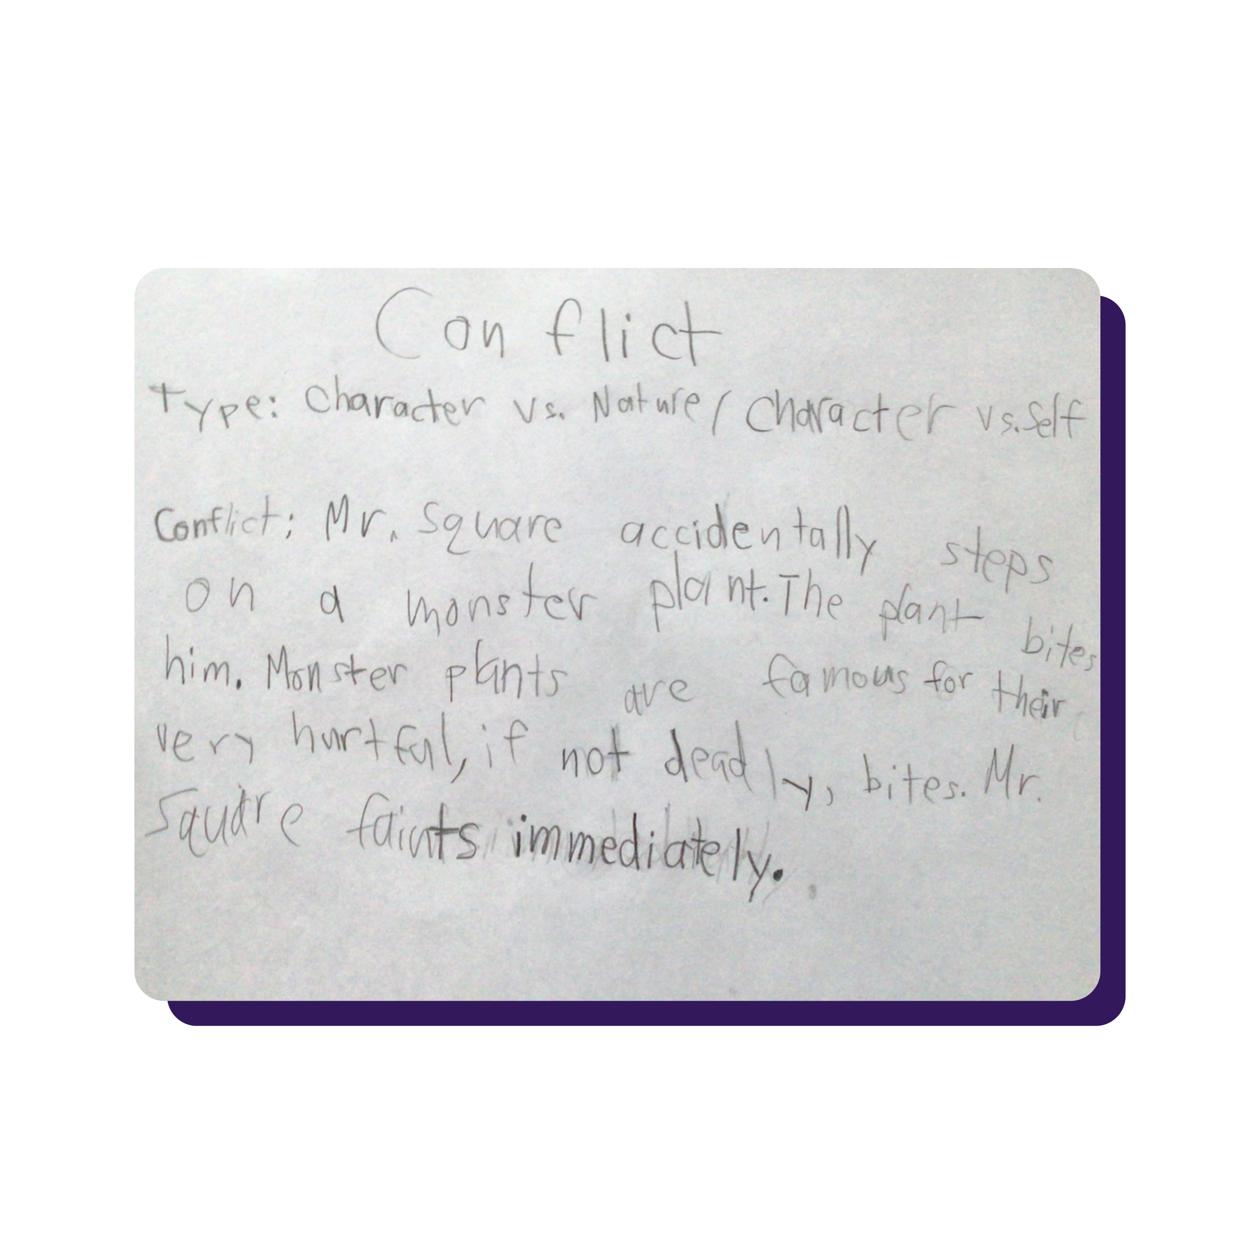 Conflict
Type: Character vs. Nature/Character vs. Self
Conflict: Mr. Square accidentally steps
on a monster plant. The plant bites
him. Monster plants are famous for their
very hurtful, if not deadly, bites. Mr.
Square faints immediately.